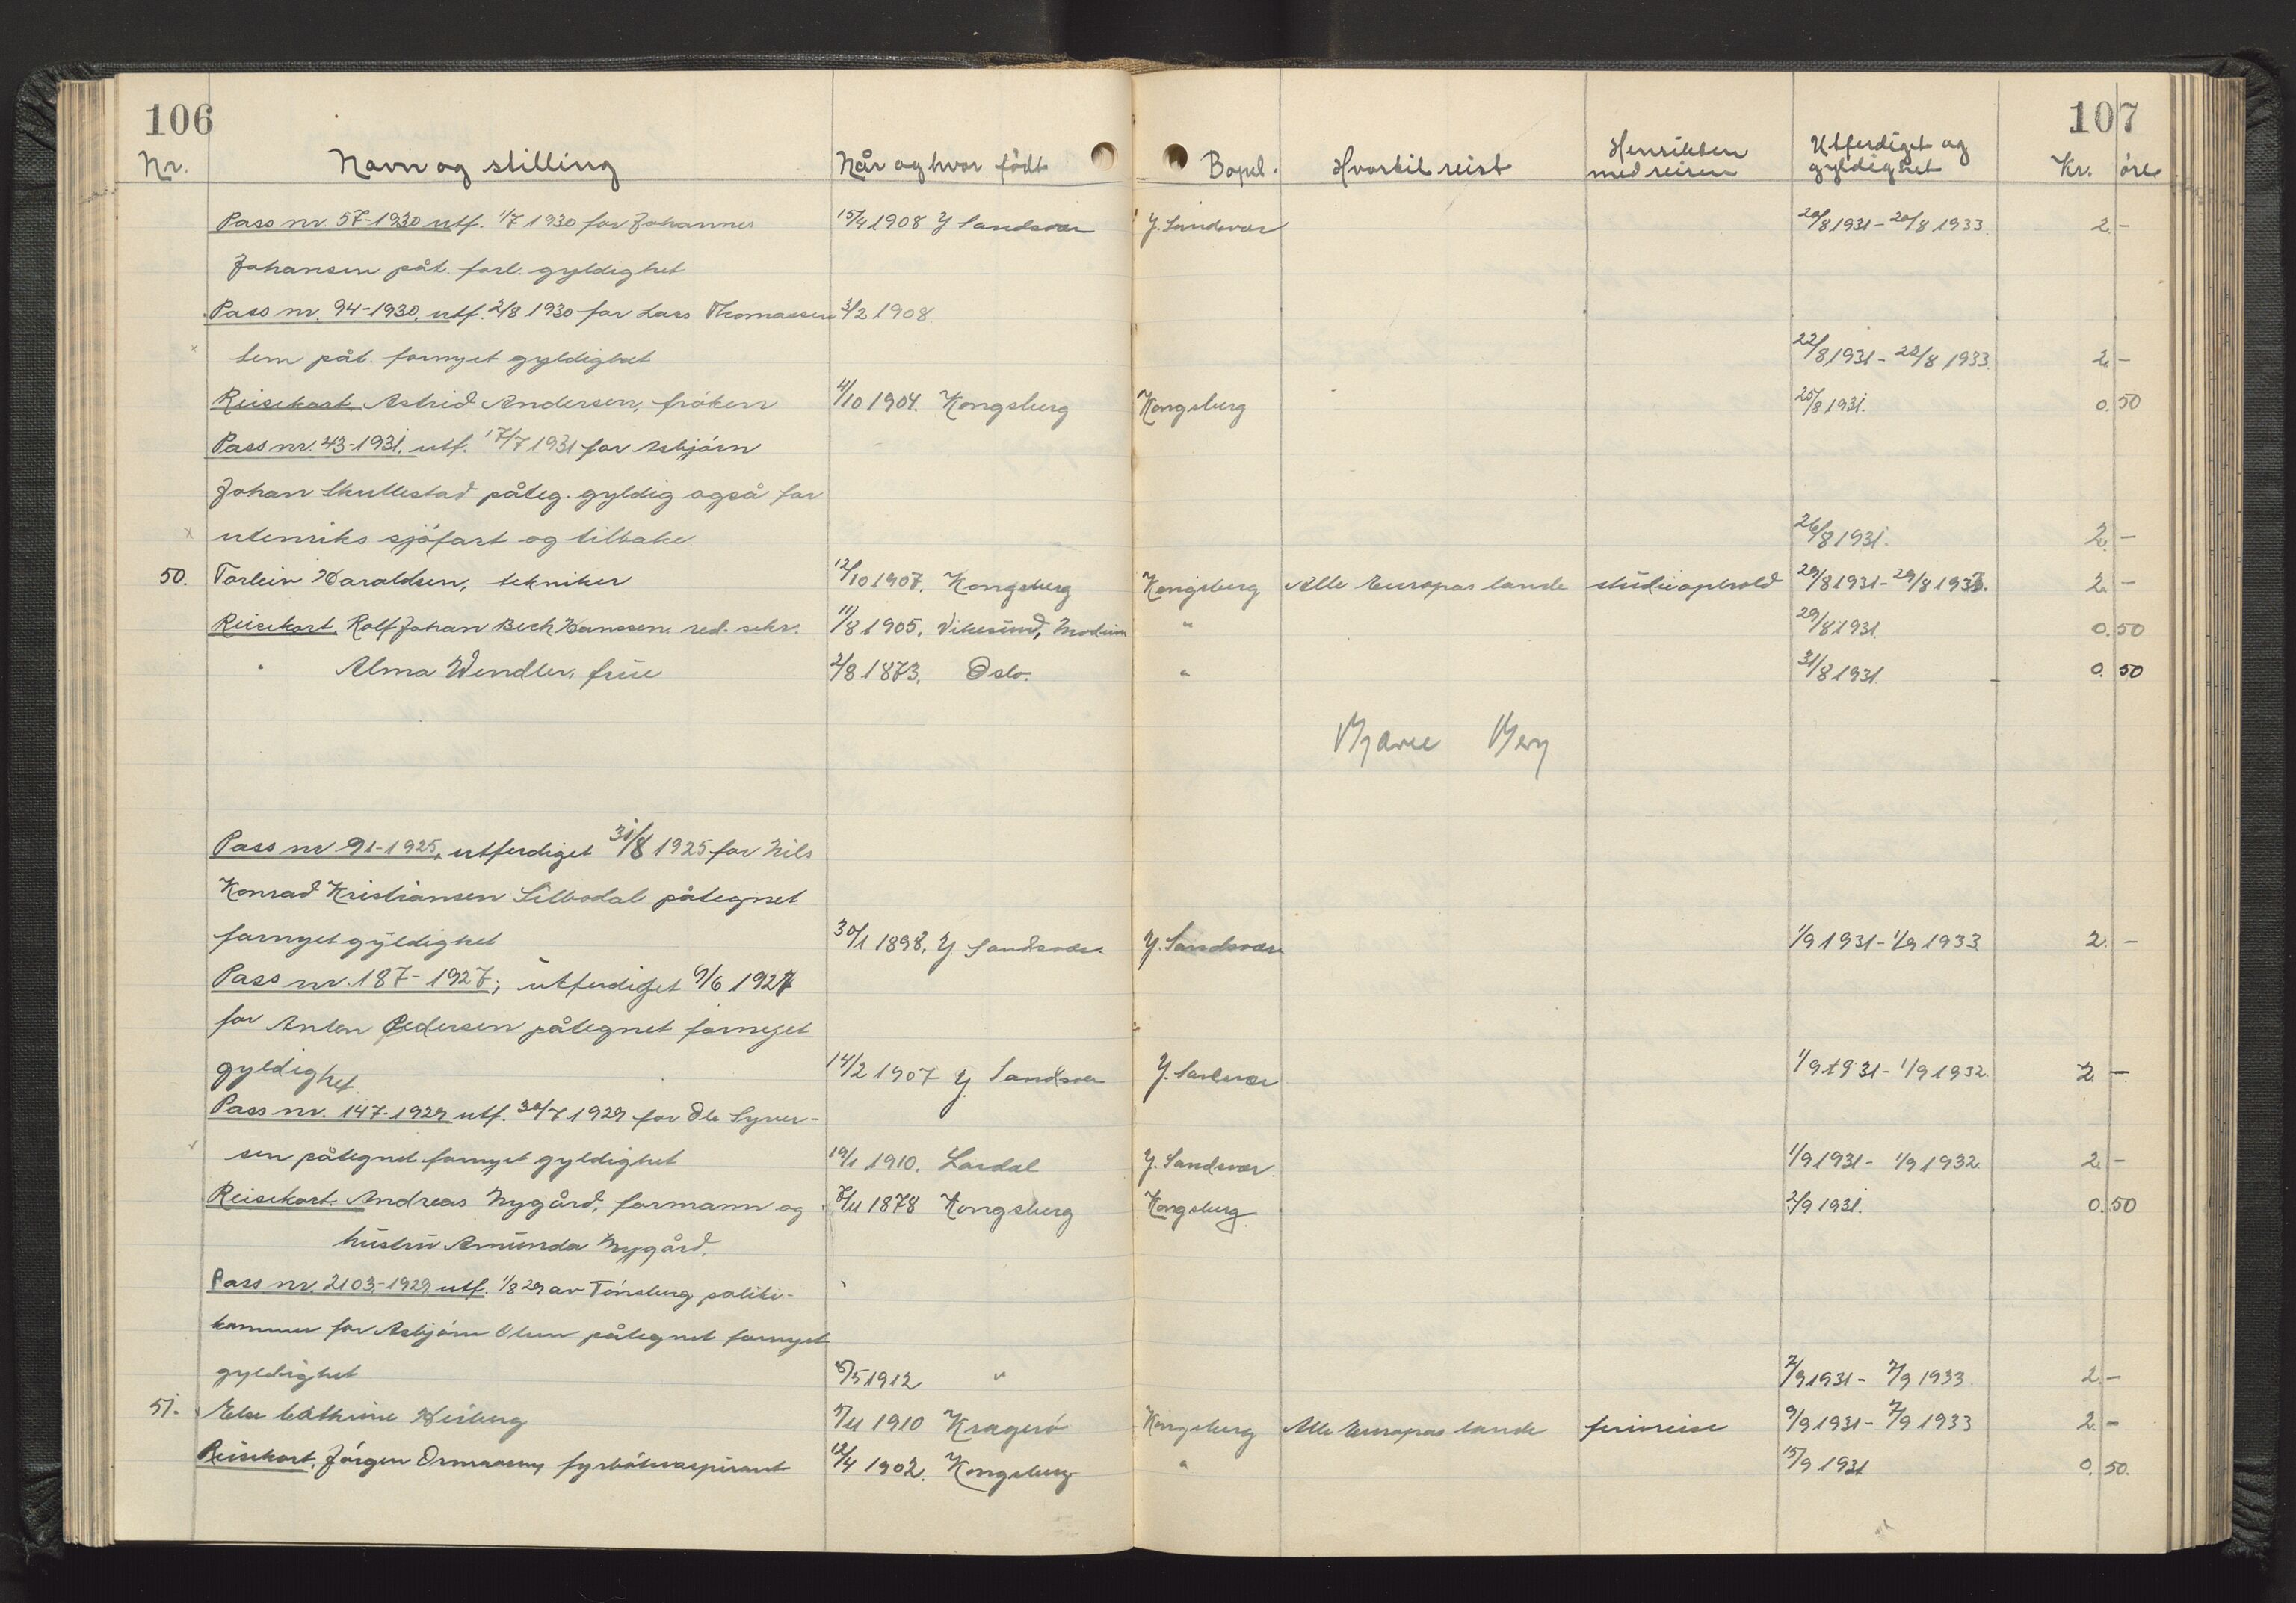 106
107
Nr. Navn og stilling Når og hvor født Bopel. Hvortil reist Hensikten med reisen Utferdiget og gyldighet Kr. øre
Pass nr. 57-1930 utf. 1/7 1930 for Johannes 15/4 1908 Y Sandsvær Y. Sandsvær 20/8 1931 - 20/8 1933. 2 -
Johansen påt. forl. gyldighet
Pass nr. 94-1930, utf. 2/8 1930 for Lars Thomassen 3/2 1908.
Sem påt. fornyet gyldighet 22/8 1931 - 22/8 1933. 2 -
Reisekort Astrid Andersen, frøken 4/10 1904. Kongsberg Kongsberg 25/8 1931. 0. 50
Pass nr. 43-1931, utf. 17/7 1931 for Asbjørn
Johan Skullestad påteg. gyldig også for
utenriks sjøfart og tilbake 26/8 1931. 2 -
50. Torleiv Haraldsen, tekniker 12/10 1907. Kongsberg Kongsberg Alle Europas lande studieophold 29/8 1931 - 29/8 1933. 2 -
Reisekort. Rolf Johan Bech Hanssen, red. sekr. 11/8 1905, Vikesund, Modum " 29/8 1931. 0. 50
" Alma Wendler, frue 2/8 1873. Oslo. " 31/8 1931. 0. 50
Pass nr 91-1925, utferdiget 31/8 1925 for Nils
Konrad Kristiansen Silbodal påtegnet
fornyet gyldighet 30/1 1898, Y. Sandsvær Y. Sandsvær 1/9 1931 - 1/9 1933 2. -
Pass nr. 187-1927, utferdiget 9/6 1927
for Anton Pedersen påtegnet fornyet
gyldighet 14/2 1907 Y. Sandsvær Y. Sandsvær 1/9 1931 - 1/9 1932. 2 -
Pass nr. 147-1929 utf. 30/7 1929 for Ole Syver-
sen påtegnet fornyet gyldighet 19/1 1910. Lardal Y. Sandsvær 1/9 1931 - 1/9 1932 2 -
Reisekort. Andreas Nygård, formann og 7/11 1878 Kongsberg Kongsberg 2/9 1931. 0. 50
hustru Amunda Nygård.
Pass nr. 2103-1929 utf. 1/8 29 av Tönsberg politi-
kammer for Asbjørn Olsen påtegnet fornyet
gyldighet 6/5 1912 " 7/9 1931 - 7/9 1933. 2 -
51. Else Cathrine Heiberg 5/11 1910 Kragerö Kongsberg Alle Europas lande feriereise 9/9 1931 - 7/9 1933 2 -
Reisekort, Jörgen fyrbøteraspirant 12/4 1902. Kongsberg " 15/9 1931 0. 50.